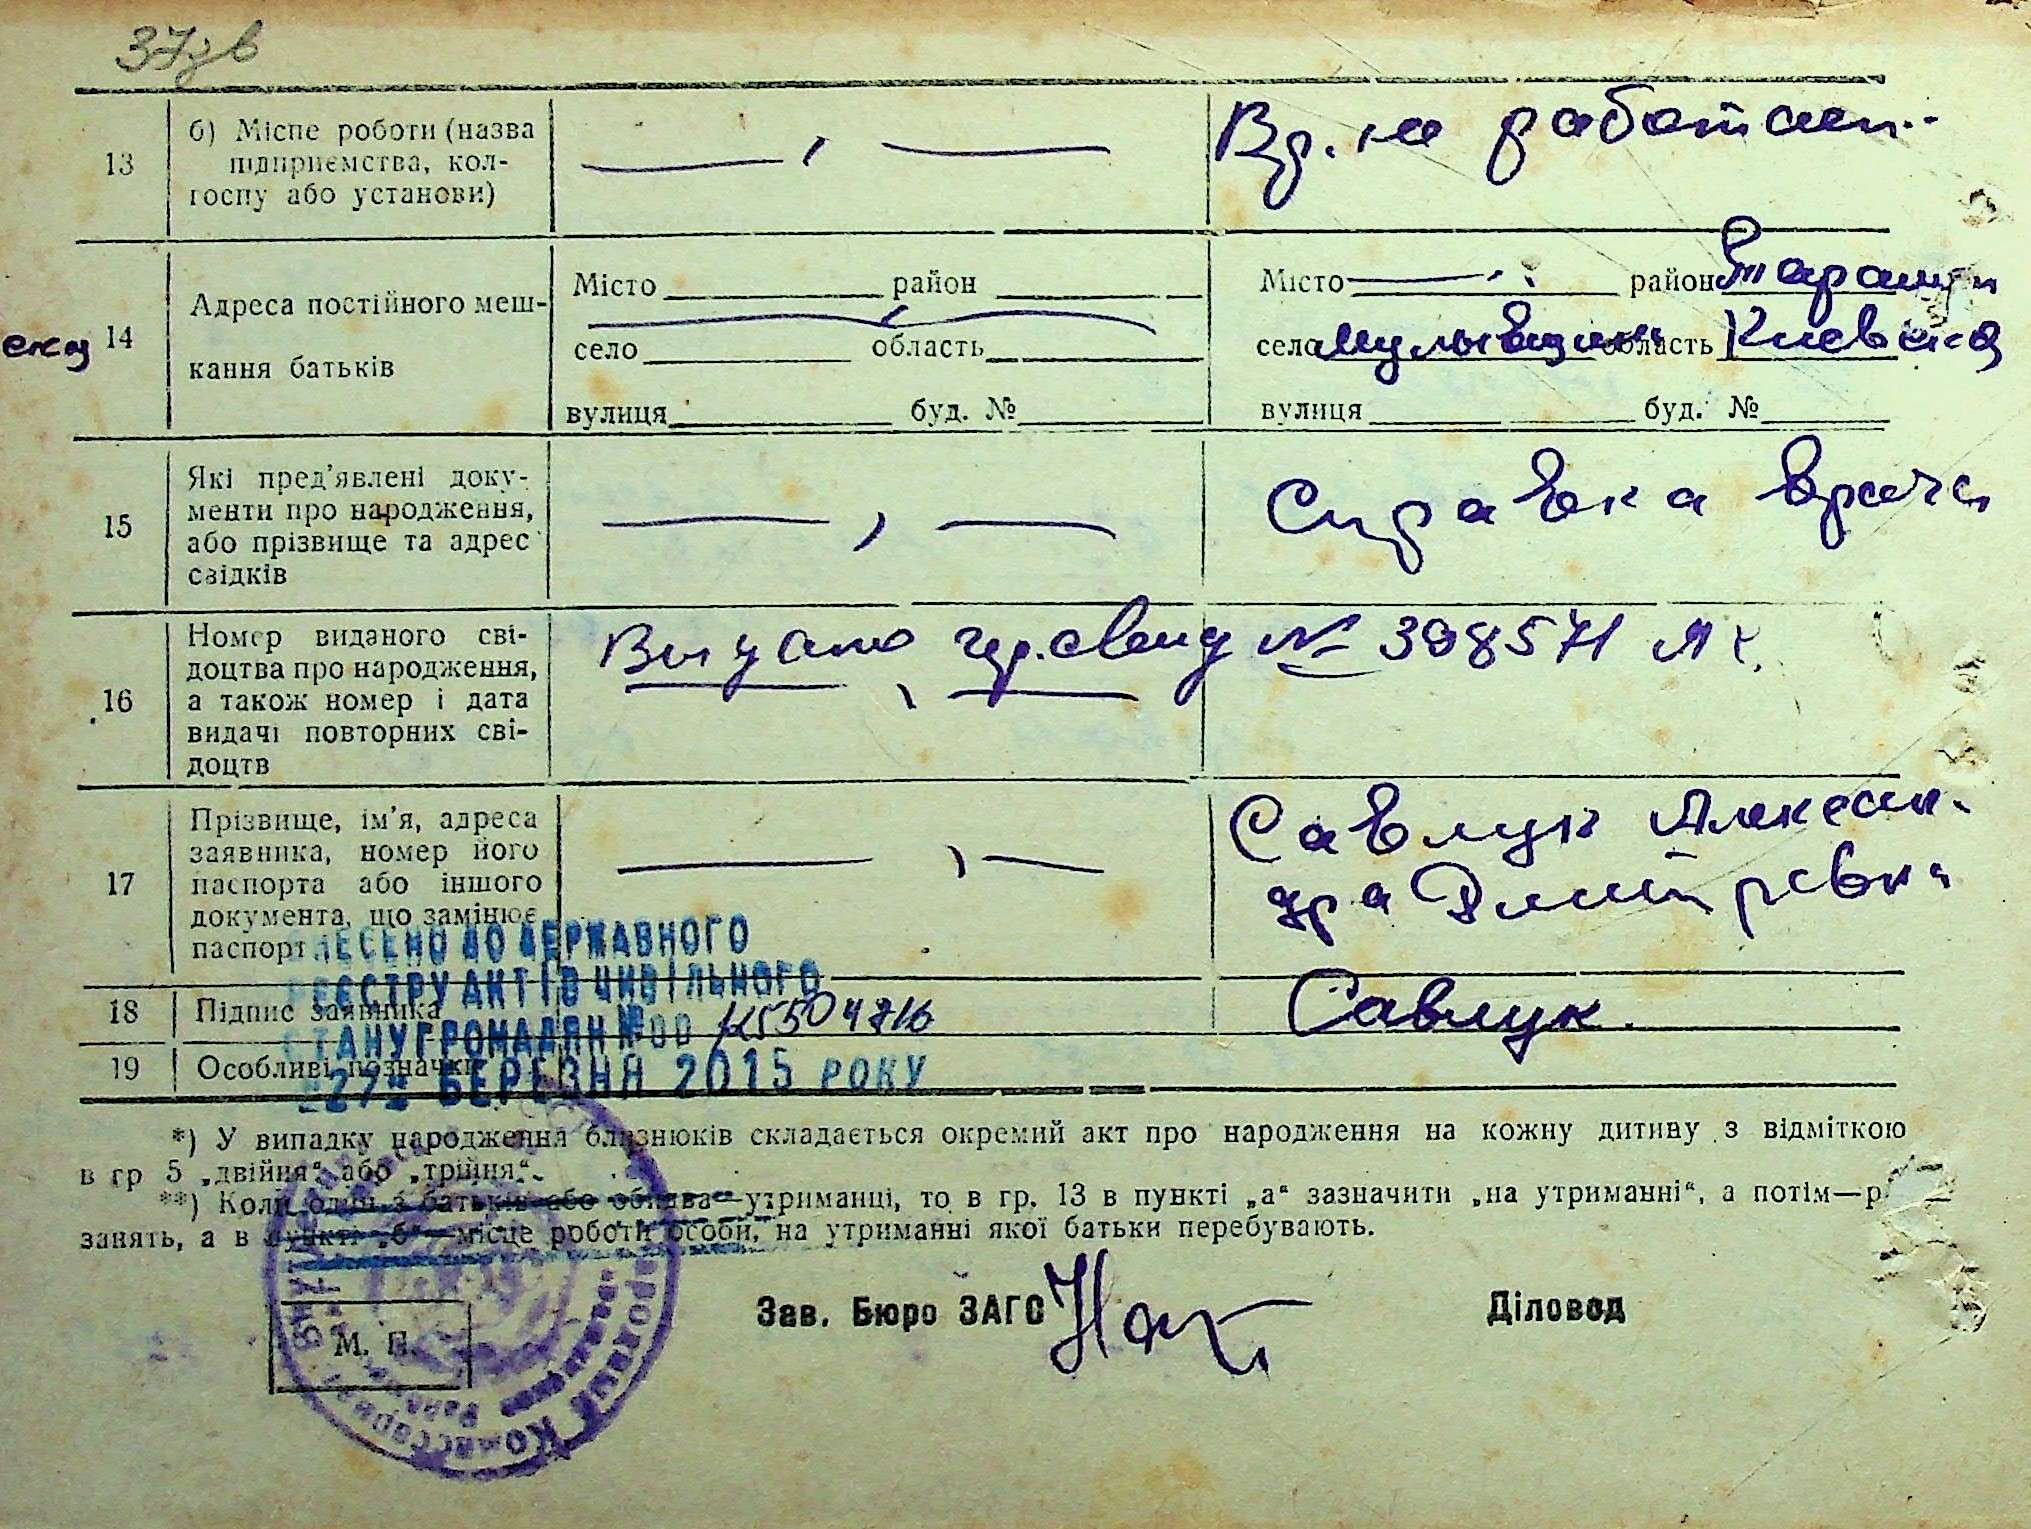 37зв
13
б) Місце роботи (назва
підприємства, кол-
госпу або установи)
Вр. не работает
14
Адреса постійного меш-
кання батьків
Місто район
село область
вулиця буд. №
Місто район Таращан
село область Киевская
вулиця буд. №
15
Які пред'явлені доку-
менти про народження,
або прізвище та адрес
свідків
Справка врача
16
Номер виданого сві-
доцтва про народження,
а також номер і дата
видачі повторних сві-
доцтв
Выдано № 398571
17
Прізвище, ім'я, адреса
заявника, номер його
паспорта або іншого
документа, що замінює
паспорт
Савлук Алексан-
дра Дмитревна
18
Підпис заявника
Савлук
19
Особливі позначки
ВНЕСЕНО ДО ДЕРЖАВНОГО
РЕЄСТРУ АКТІВ ЦИВІЛЬНОГО
СТАНУ ГРОМАДЯН № 00
"27" БЕРЕЗНЯ 2015 РОКУ
*) У випадку народження близнюків складається окремий акт про народження на кожну дитину з відміткою
в гр 5 „двійня" або „трійня".
**) Коли один з батьків або обидва утриманці, то в гр. 13 в пункті „а" зазначити „на утриманні", а потім—р
занять, а в пункті „б"—місце роботи особи, на утриманні якої батьки перебувають.
М. П.
Зав. Бюро ЗАГС
Діловод